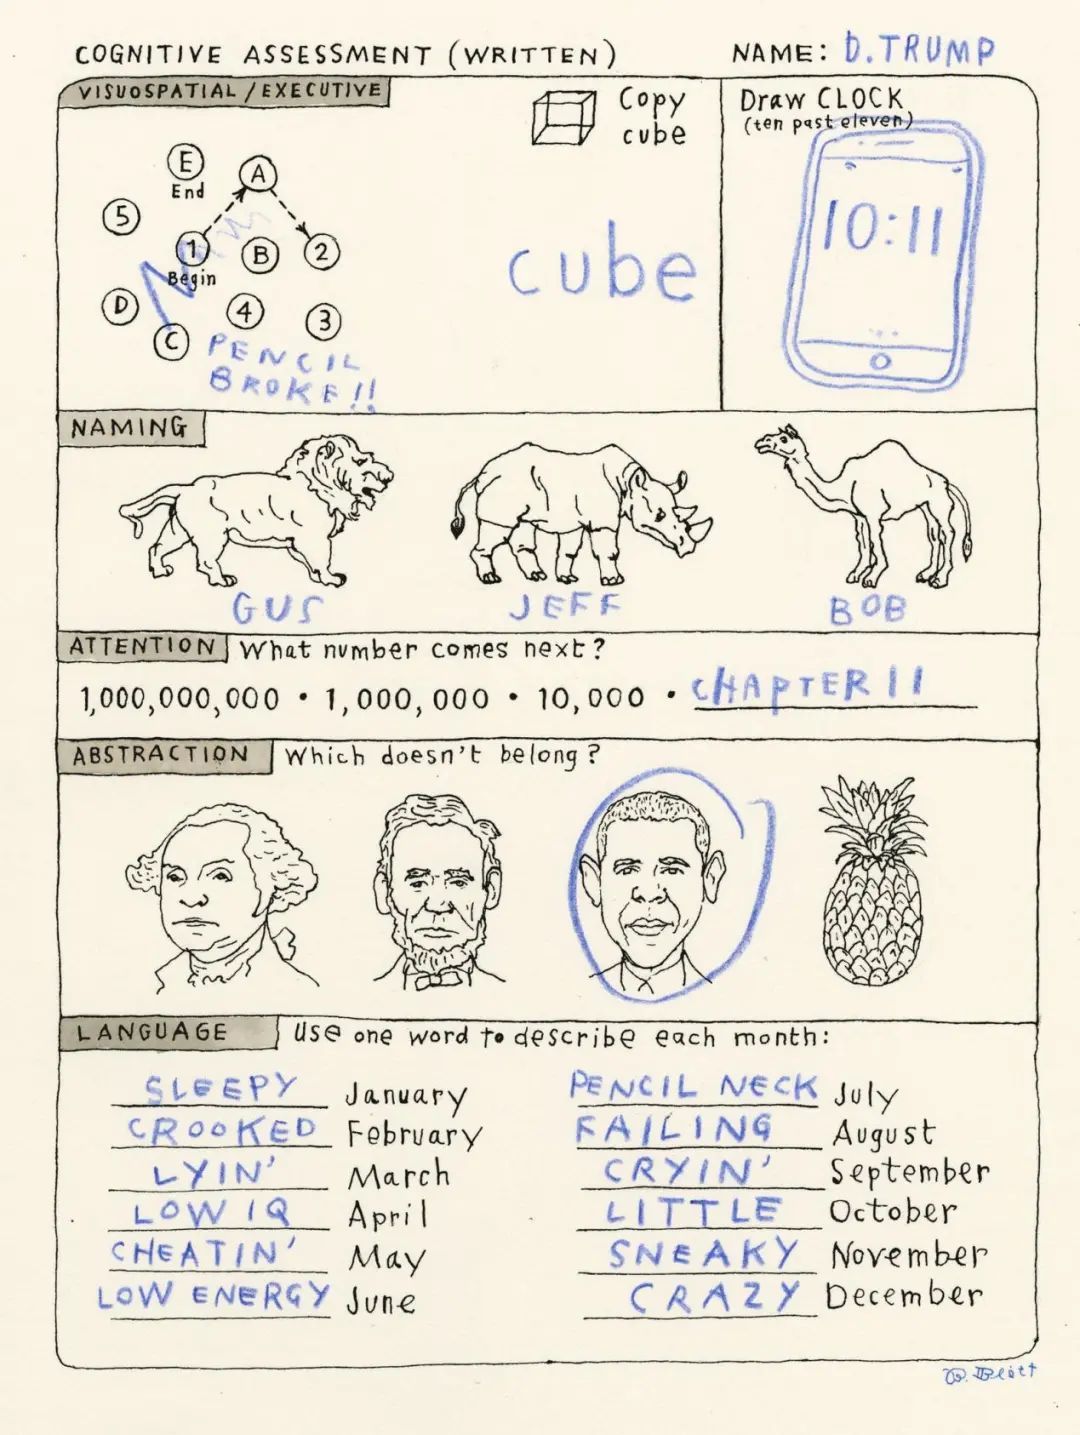 COGNITIVE ASSESSMENT (WRITTEN)
NAME: D. TRUMP
VISUOSPATIAL / EXECUTIVE
Copy
cube
Draw CLOCK
(ten past eleven)
E
End
A
5
1
Begin
B
2
D
4
3
C
PENCIL
BROKE!!
cube
10:11
NAMING
GUS
JEFF
BOB
ATTENTION What number comes next?
1,000,000,000 • 1,000,000 • 10,000 • CHAPTER 11
ABSTRACTION Which doesn't belong?
LANGUAGE Use one word to describe each month:
SLEEPY January
CROOKED February
LYIN' March
LOW IQ April
CHEATIN' May
LOW ENERGY June
PENCIL NECK July
FAILING August
CRYIN' September
LITTLE October
SNEAKY November
CRAZY December